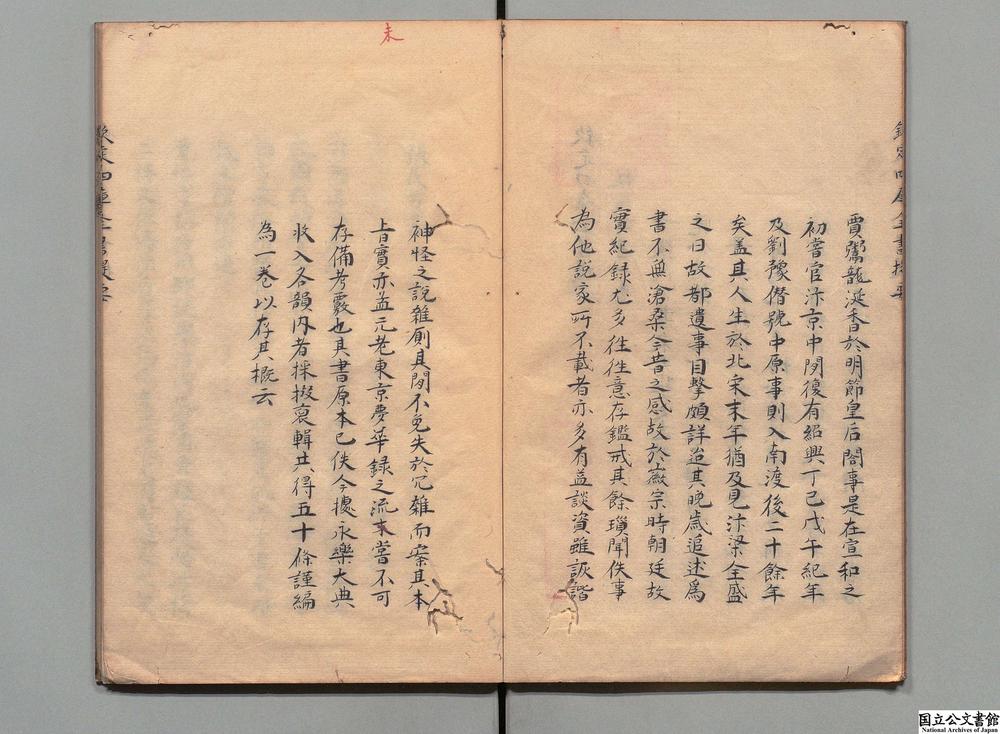 賈鬻龍涎香於明節皇后閤事是在宣和之
初嘗官汴京中間復有紹興丁巳戊午紀年
及劉豫僣號中原事則入南渡後二十餘年
矣盖其人生於北宋末年猶及見汴梁全盛
之日故都遺事目擊頗詳迨其晚歲追述爲
書不無滄桑今昔之感故於徽宗時朝廷故
實紀録尤多往往意存鑑戒其餘瑣聞佚事
為他說家所不載者亦多有益談資雖詼諧
神怪之說雜厠其間不免失於冗雜而案其本
旨實亦孟元老東京夢華録之流未嘗不可
存備考覈也其書原本已佚今據永樂大典
收入各韻内者採掇裒輯共得五十條謹編
為一巻以存其概云
欽定四庫全書提要
欽定四庫全書提要
未
国立公文書館
National Archives of Japan